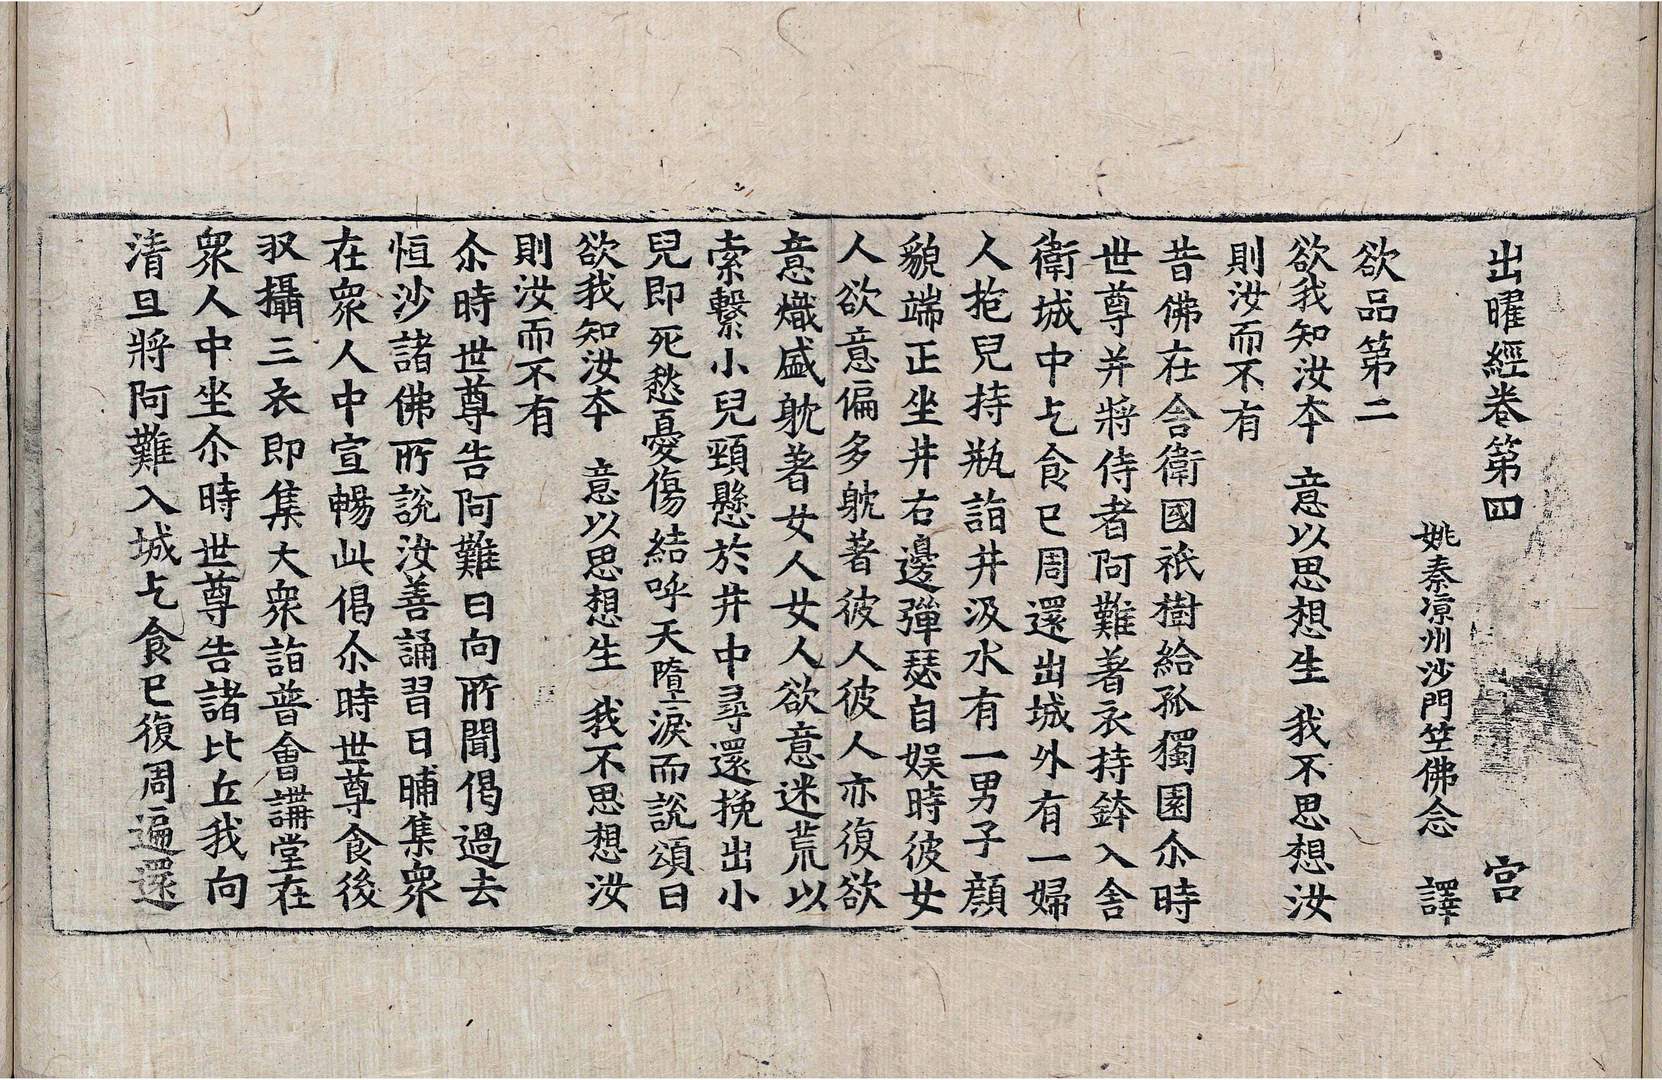 出曜經卷第四　宫
姚秦涼州沙門竺佛念　譯
欲品第二
欲我知汝夲　意以思想生　我不思想汝
則汝而不有
昔佛在舎衛國祇樹給孤獨園尒時
世尊并將侍者阿難著衣持鉢入舎
衛城中乞食已周還出城外有一婦
人抱兒持瓶詣井汲水有一男子顔
貌端正坐井右邊彈瑟自娱時彼女
人欲意偏多躭著彼人彼人亦復欲
意熾盛躭著女人女人欲意迷荒以
索繫小兒頸懸於井中尋還挽出小
兒即死愁憂傷結呼天墮淚而説頌曰
欲我知汝夲　意以思想生　我不思想汝
則汝而不有
尒時世尊告阿難曰向所聞偈過去
恒沙諸佛所説汝善誦習日晡集衆
在衆人中宣暢此偈尒時世尊食後
収攝三衣即集大衆詣普會講堂在
衆人中坐尒時世尊告諸比丘我向
清旦將阿難入城乞食已復周遍還